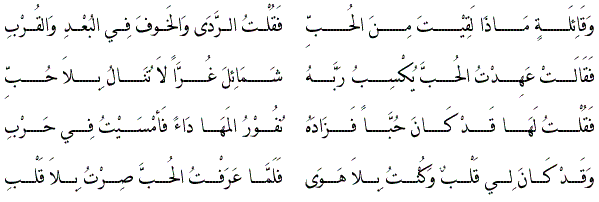 وَقَائِلَـةٍ مَـاذَا لَقِيْـتَ مِـنَ الحُـبِّ فَقُلْـتُ الـرَّدَى وَالخَوفَ فِـي البُعْدِ وَالقُرْبِ
فَقَالَـتْ عَهِـدْتُ الحُـبَّ يُكْسِبُ رَبَّـهُ شَمَـائِلَ غُـرّاً لاَ تُنَـالُ بِـلاَ حُـبِّ
فَقُلْـتُ لَهَا قَـدْ كَـانَ حُبّـاً فَـزَادَهُ نُفُـوْرُ المَهَـا دَاءً فَأَمْسَيْـتُ فِـي حَـرْبِ
وَقَـدْ كَـانَ لِـي قَلْبٌ وَكُنْـتُ بِـلاَ هَوَى فَلَمَّـا عَرَفْتُ الحُـبَّ صِرْتُ بِـلاَ قَلْبِ